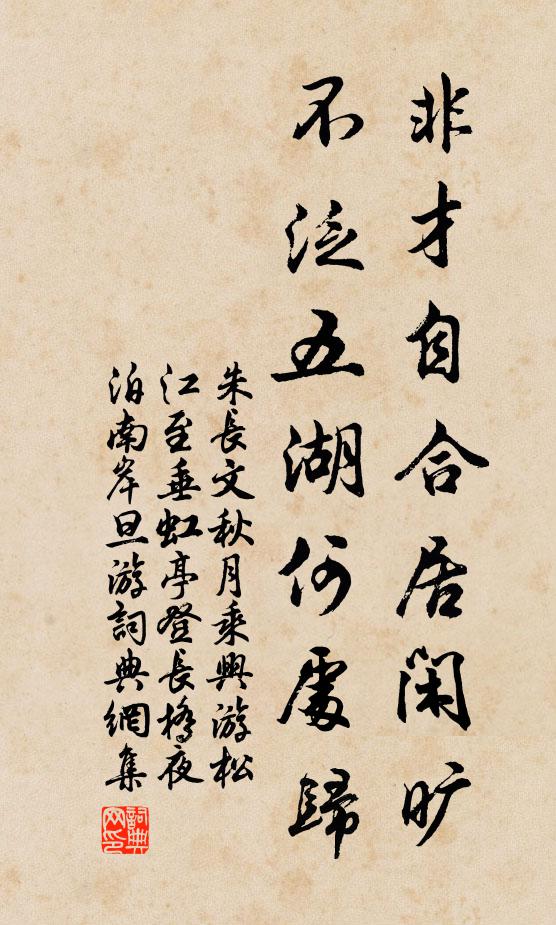 非才自合居閑曠
不泛五湖何處歸
朱長文秋月乘興游松
江至垂虹亭登長橋夜
泊南岸旦游詞典網集
詞典
网印